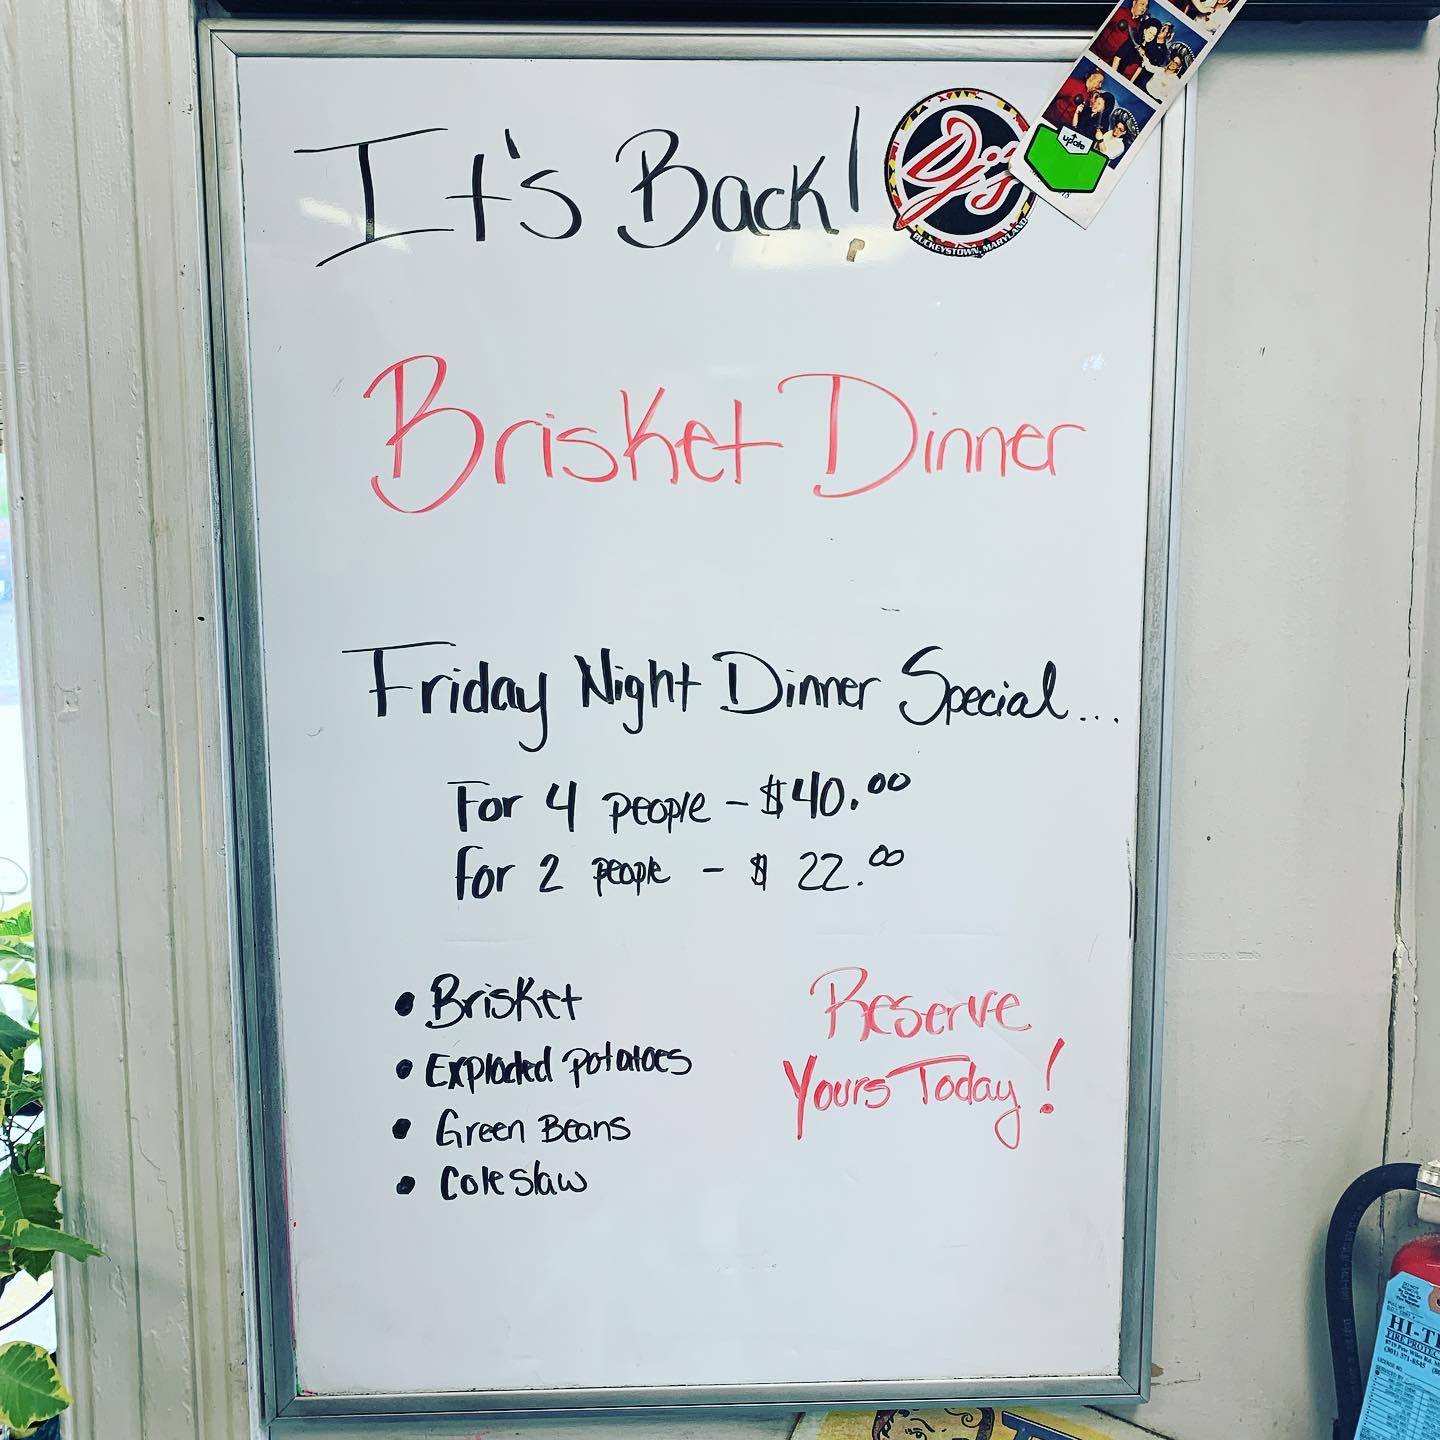 It's Back!
Dj's
BUCKEYSTOWN, MARYLAND
update
Brisket Dinner
Friday Night Dinner Special...
For 4 people - $40.00
For 2 people - $22.00
• Brisket
• Exploded Potatoes
• Green Beans
• Coleslaw
Reserve
Yours Today!
HI-T
FIRE PROTEC
(301) 371-8545